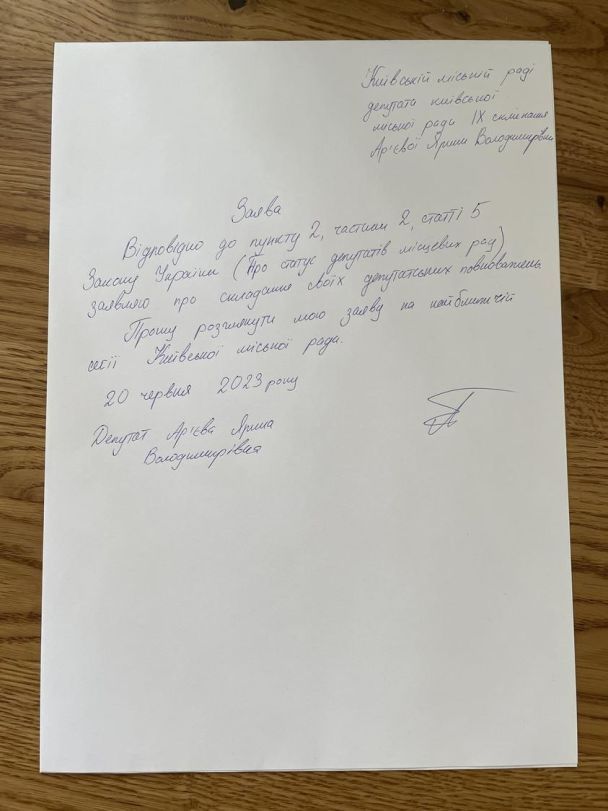 Київській міській раді
депутата київської
міської ради IX скликання
Ар'євої Ярини Володимирівни
Заява
Відповідно до пункту 2, частини 2, статті 5
Закону України (Про статус депутатів місцевих рад)
заявляю про складання своїх депутатських повноважень.
Прошу розглянути мою заяву на найближчій
сесії Київської міської ради.
20 червня 2023 року
Депутат Ар'єва Ярина
Володимирівна